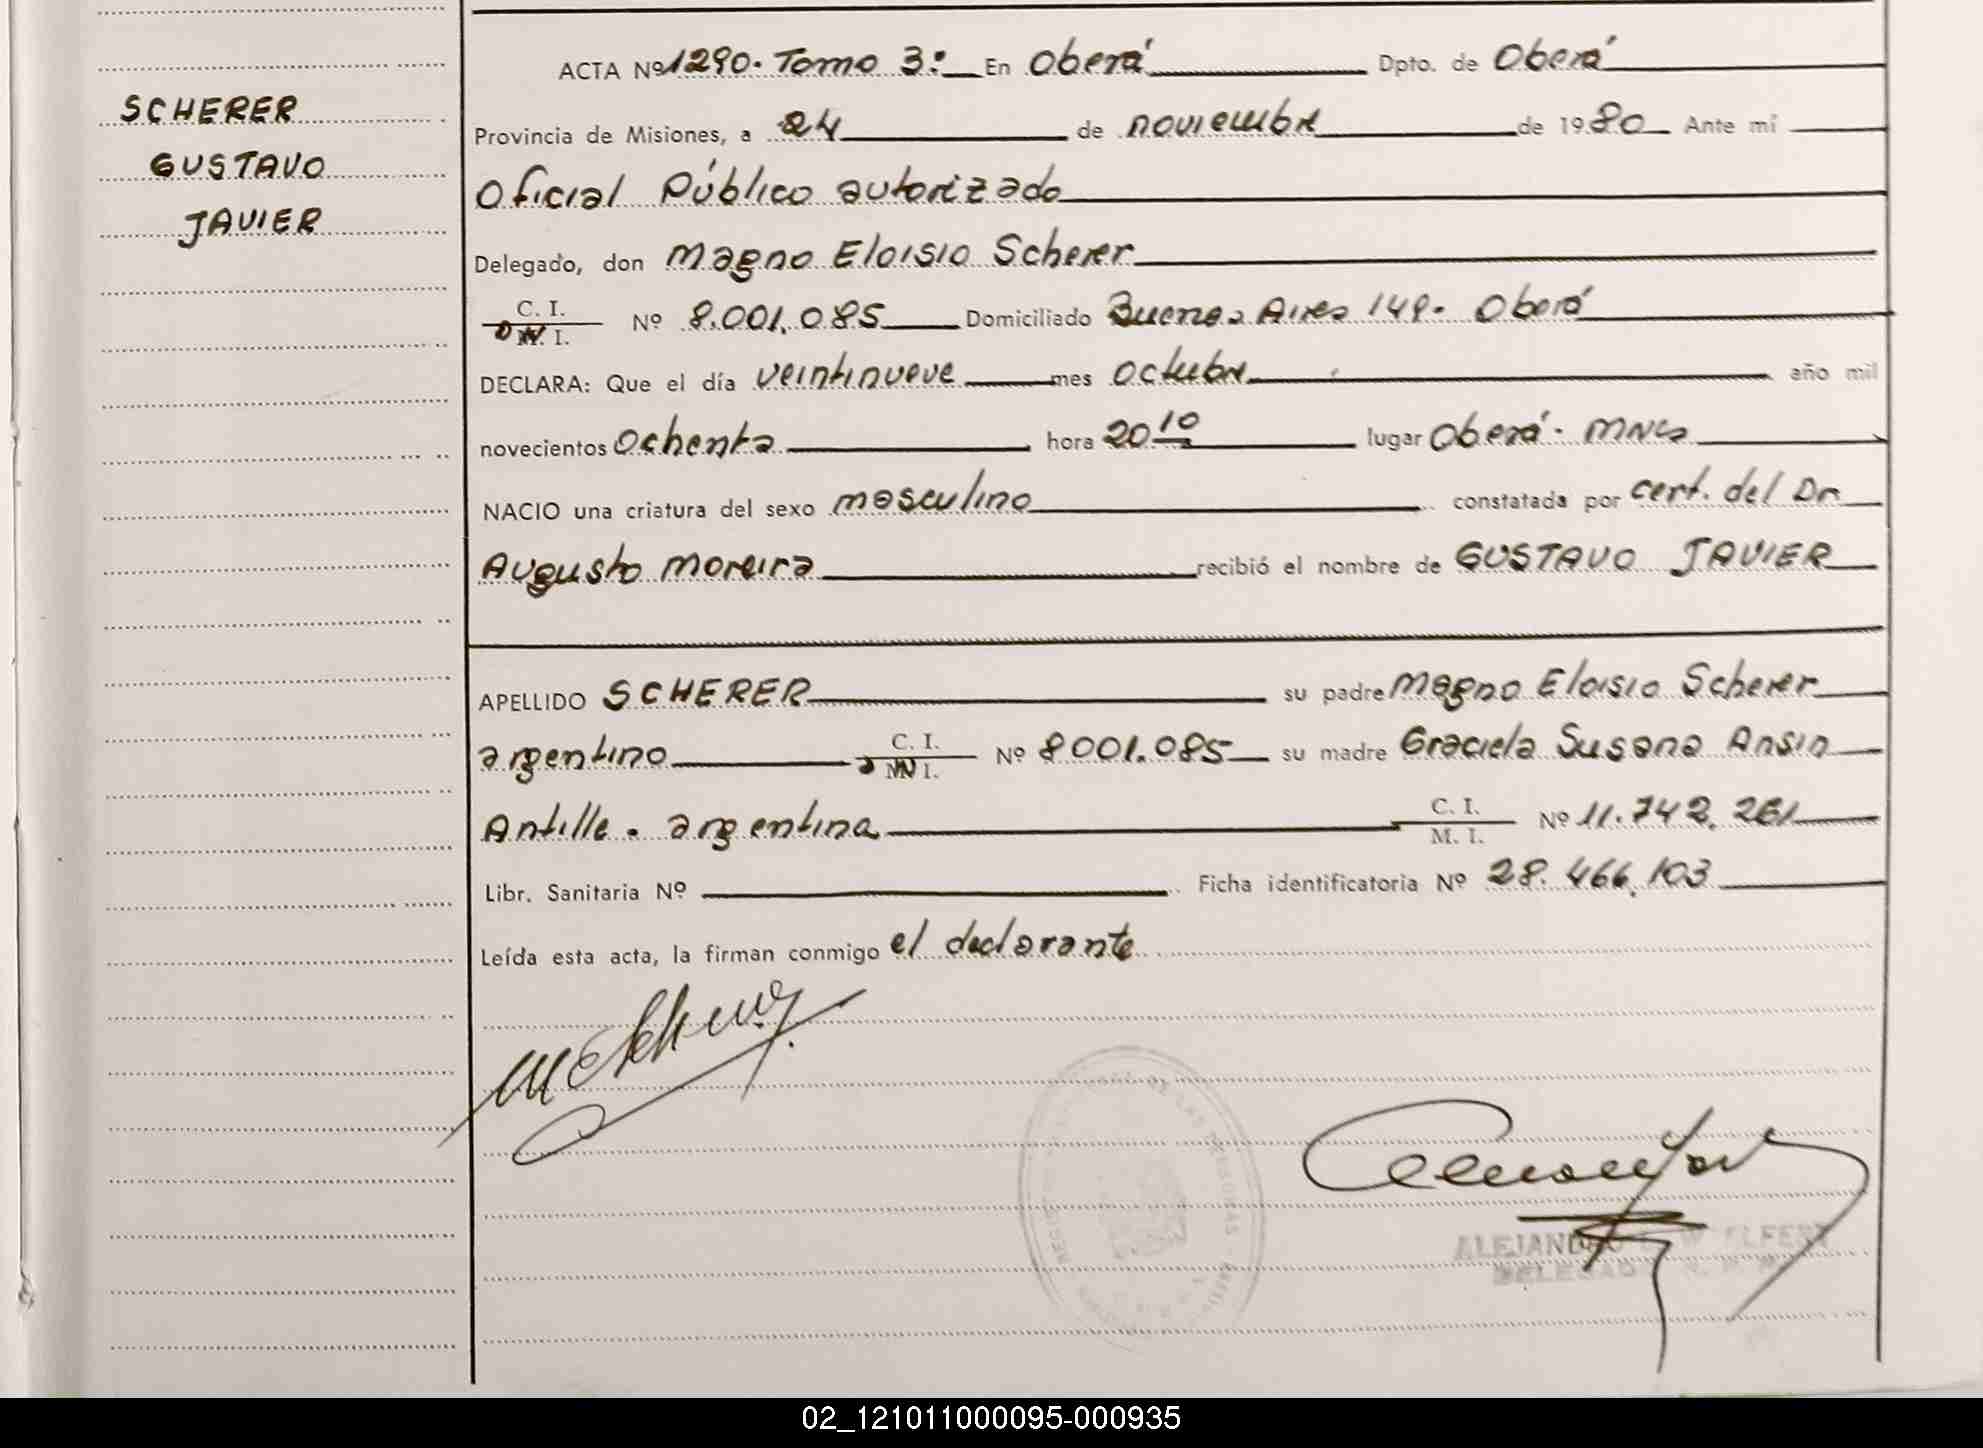 SCHERER
GUSTAVO
JAVIER
ACTA Nº 1290. Tomo 3º En Oberá Dpto. de Oberá
Provincia de Misiones, a 24 de noviembre de 1980 Ante mí
Oficial Público autorizado
Delegado, don Magno Eloisio Scherer
C. I.
M. I. Nº 8.001.085 Domiciliado Buenos Aires 149. Oberá
DECLARA: Que el día veintinueve mes octubre año mil
novecientos ochenta hora 20 10 lugar Oberá. Mnes
NACIO una criatura del sexo masculino constatada por cert. del Dr
Augusto Moreira recibió el nombre de GUSTAVO JAVIER
APELLIDO SCHERER su padre Magno Eloisio Scherer
argentino C. I. M. I. Nº 8001.085 su madre Graciela Susana Ansin
Antille. argentina C. I. M. I. Nº 11.742.261
Libr. Sanitaria Nº Ficha identificatoria Nº 28.466.103
Leída esta acta, la firman conmigo el declarante
ALEJANDRO
DELEGADO
02_121011000095-000935